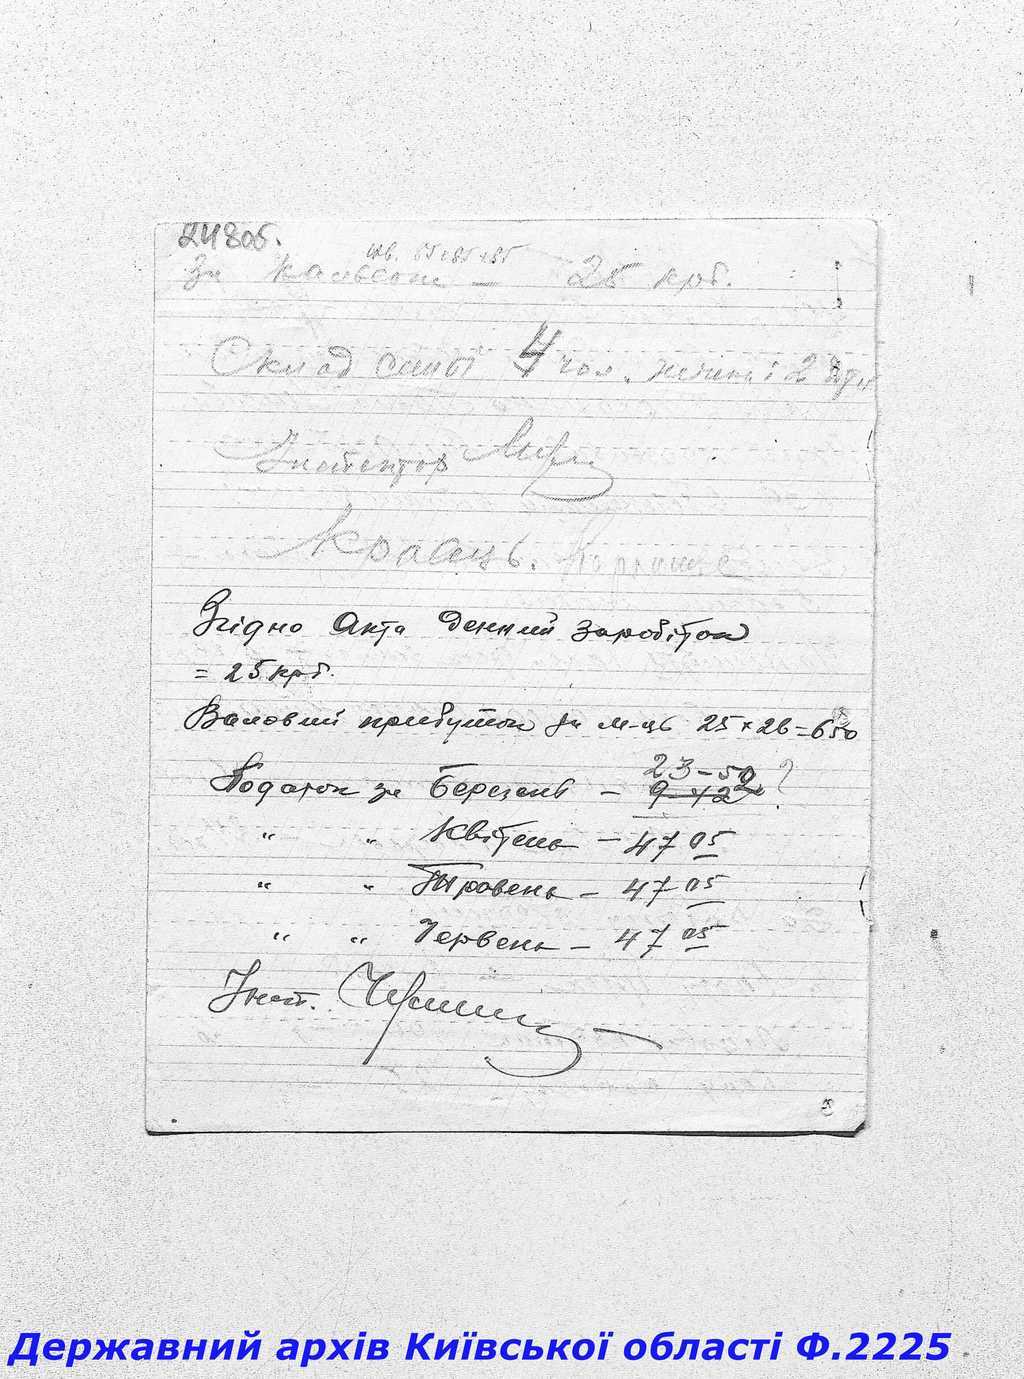 24806.
За кальсони — 25 крб.
Склад сімьї 4 чол. жінка і 2 діти
Інспектор
Кравець.
Згідно Акта денний заробіток
= 25 крб.
Валовий прибуток за м-ць 25 × 26 = 650
23-50 ?
Податок за березень — 9-42
" " Квітень — 47 05
" " Травень — 47 05
" " Червень — 47 05
Інсп.
Державний архів Київської області Ф.2225